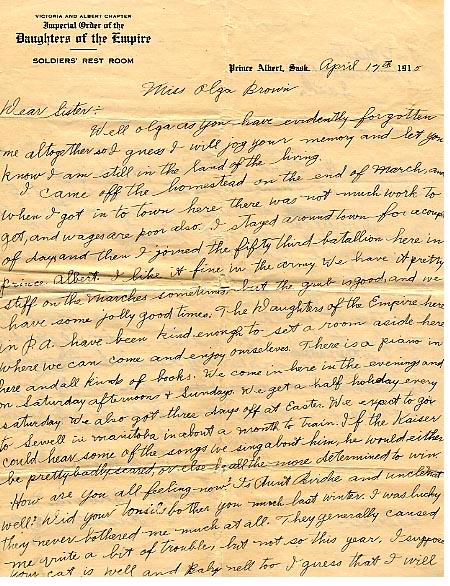 VICTORIA AND ALBERT CHAPTER
Imperial Order of the
Daughters of the Empire
SOLDIERS' REST ROOM
Prince Albert, Sask. April 17th 1915
Miss Olga Brown
Dear Sister:
Well Olga as you have evidently forgotten
me altogether so I guess I will jog your memory and let you
know I am still in the land of the living.
I came off the homestead on the end of March, and
when I got in to town here there was not much work to
get, and wages are poor also. I stayed around town for a couple
of day and then I joined the fifty third batallion here in
Prince Albert. I like it fine in the army. We have it pretty
stiff on the marches sometimes, but the grub is good, and we
have some jolly good times. The Daughters of the Empire here
in P.A. have been kind enough to set a room aside here
where we can come and enjoy ourselves. There is a piano in
here and all kinds of books. We come in here in the evenings and
on Saturday afternoon & Sundays. We get a half holiday every
saturday. We also got three days off at Easter. We expect to go
to Sewell in manitoba in about a month to train. If the Kaiser
could hear some of the songs we sing about him, he would either
be pretty badly scared or else be all the more determined to win.
How are you all feeling now? Is Aunt and uncle
well? Did your tonsils bother you much last winter. I was lucky
they never bothered me much at all. They generally caused
me quite a bit of trouble, but not so this year. I suppose
your cat is well and Baby nell too I guess that I will